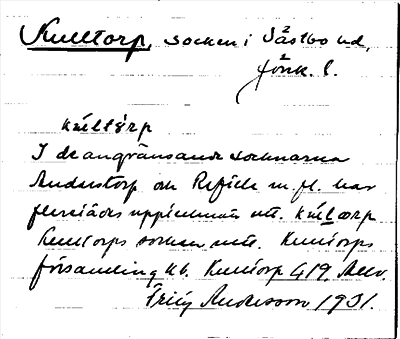 Kulltorp, socken i Västbo hd,
Jönk. l.
kúltòrp
I de angränsande socknarna
Anderstorp och Reftele m. fl. har
flerstädes upptecknats utt. kúltorp
Kulltorps socken
församling Kulltorp 419
Fritz Andersson 1931.